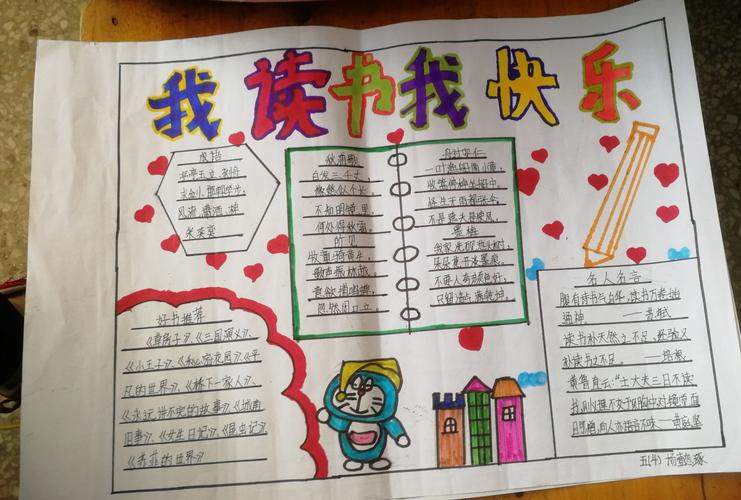 我读书我快乐
成语
亭亭玉立、
风流潇洒、神
采奕奕
秋浦歌
白发三千丈，
缘愁似个长。
不知明镜里，
何处得秋霜。
所见
牧童骑黄牛，
歌声振林樾。
意欲捕鸣蝉，
忽然闭口立。
舟过安仁
一叶渔船两小童，
收篙停棹坐船中。
怪生无雨都张伞，
不是遮头是使风。
墨梅
我家洗砚池头树，
朵朵花开淡墨痕。
不要人夸颜色好，
只留清气满乾坤。
好书推荐
《草房子》、《三国演义》、
《小王子》、《秘密花园》、《平
凡的世界》、《桥下一家人》、
《永远讲不完的故事》、《城南
旧事》、《女生日记》、《昆虫记》
《苏菲的世界》
名人名言
腹有诗书气自华，读书万卷始
通神。 ——苏轼
读书补天然之不足，经验又
补读书之不足。 ——培根
黄鲁直云：“士大夫三日不读
五(4)